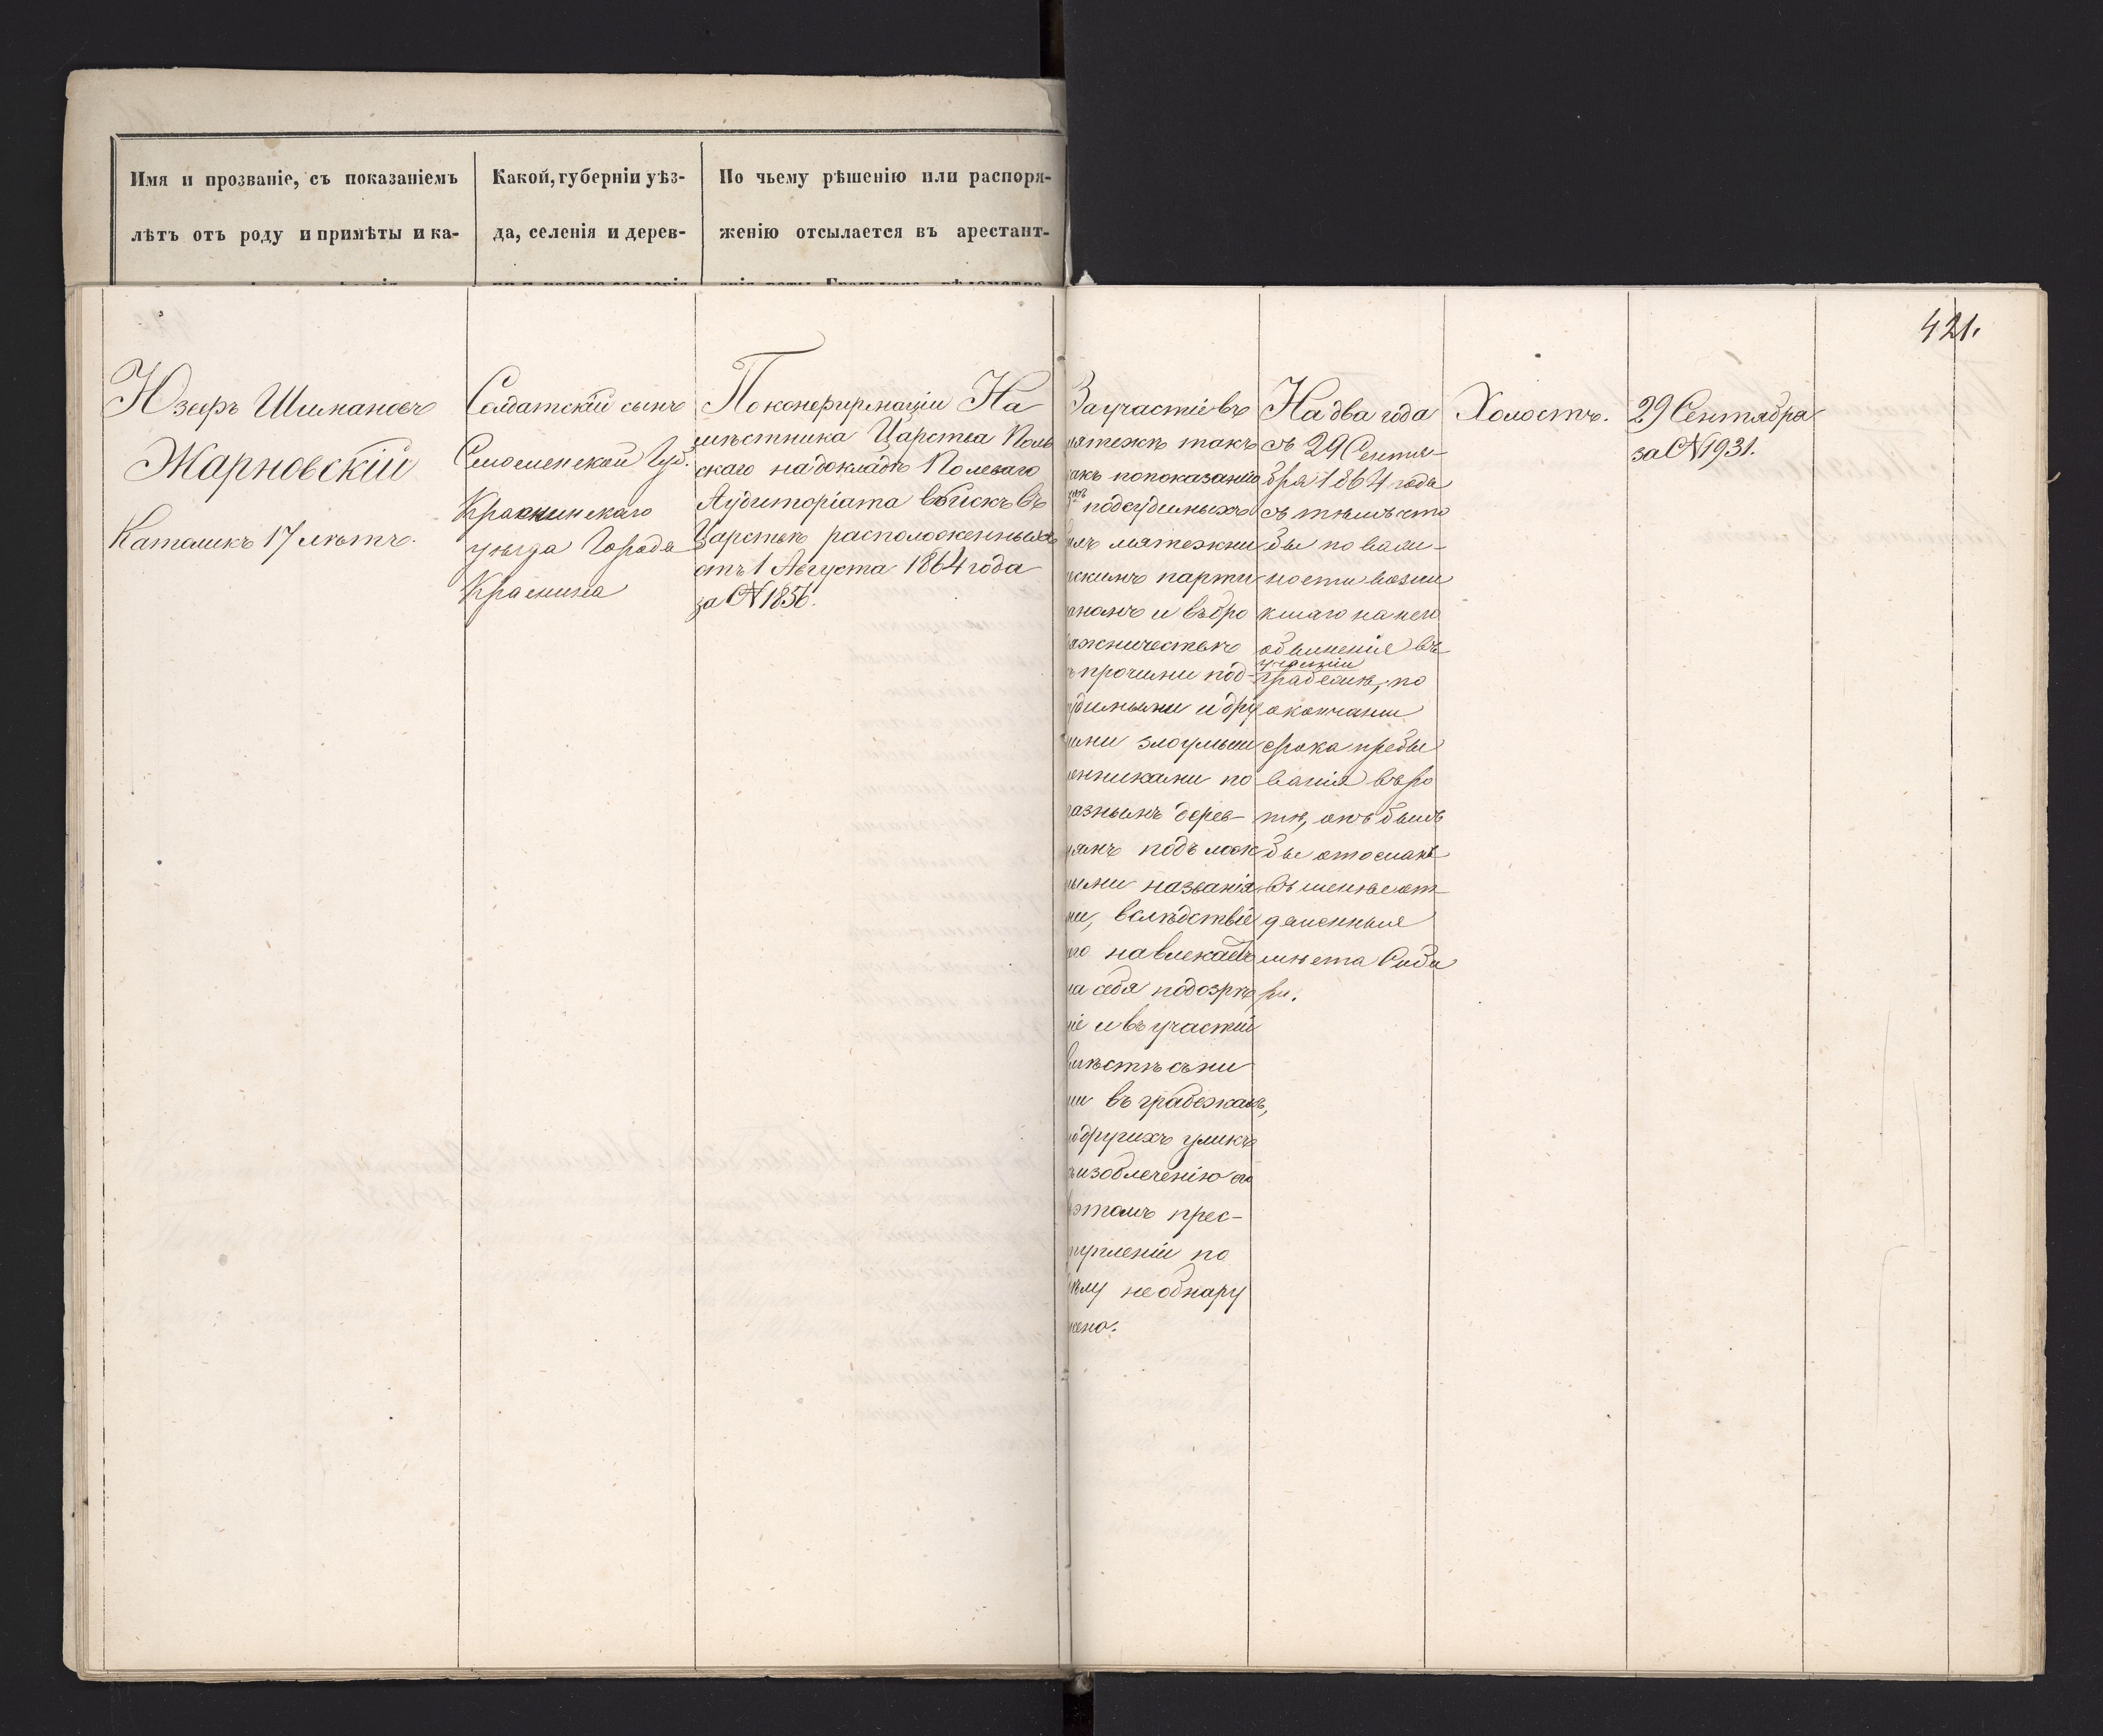 Имя и прозваніе, съ показаніемъ
лѣтъ отъ роду и примѣты и ка-
Какой, губерніи уѣз-
да, селенія и дерев-
По чьему рѣшенію или распоря-
женію отсылается въ арестант-
421.
Юзефъ Шимановъ
Жарновскій
Католикъ 17 лѣтъ.
Солдатскій сынъ
Смоленской Губ.
Краснинскаго
уѣзда Города
Краснина
По конфирмаціи На
мѣстника Царства Поль
скаго на докладѣ Полеваго
Аудиторіата войскъ въ
Царствѣ расположенныхъ
отъ 1 Августа 1864 года
за № 1856.
За участіе въ
мятежѣ такъ
какъ по показанію
подсудимыхъ
мятежни
ческимъ парти
занамъ и въ бро
дяжничествѣ
съ прочими под-
судимыми и дру
гими злоумыш
ленниками по
разнымъ дерев-
нямъ подъ лож
ными названія
ми, вслѣдствіе
чего навлекаетъ
на себя подозрѣ
ніе и въ участіи
вмѣстѣ съ ни
ми въ грабежахъ,
но другихъ уликъ
къ изобличенію его
въ этомъ прес-
тупленіи по
дѣлу не обнару
жено.
На два года
съ 29 Сентя-
бря 1864 года
съ тѣмъ что
бы по важ-
ности возни
кшаго на него
обвиненія въ
участіи
грабежѣ, по
окончании
срока пребы
ванія въ ро
тѣ, онъ былъ
бы отосланъ
въ менѣе от-
даленныя
мѣста Сиби
ри.
Холостъ.
29 Сентября
за № 1931.